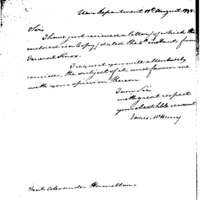 War Department 10th August 1798.
Sir
I have just received a letter, of which the
enclosed is a Copy, dated the 8th instant from
General Knox.
I request you will attentively
consider the subject of it, and favour me
with your opinion thereon.
I am Sir
with great respect
your obed. hble servant
James McHenry
Genl Alexander Hamilton.